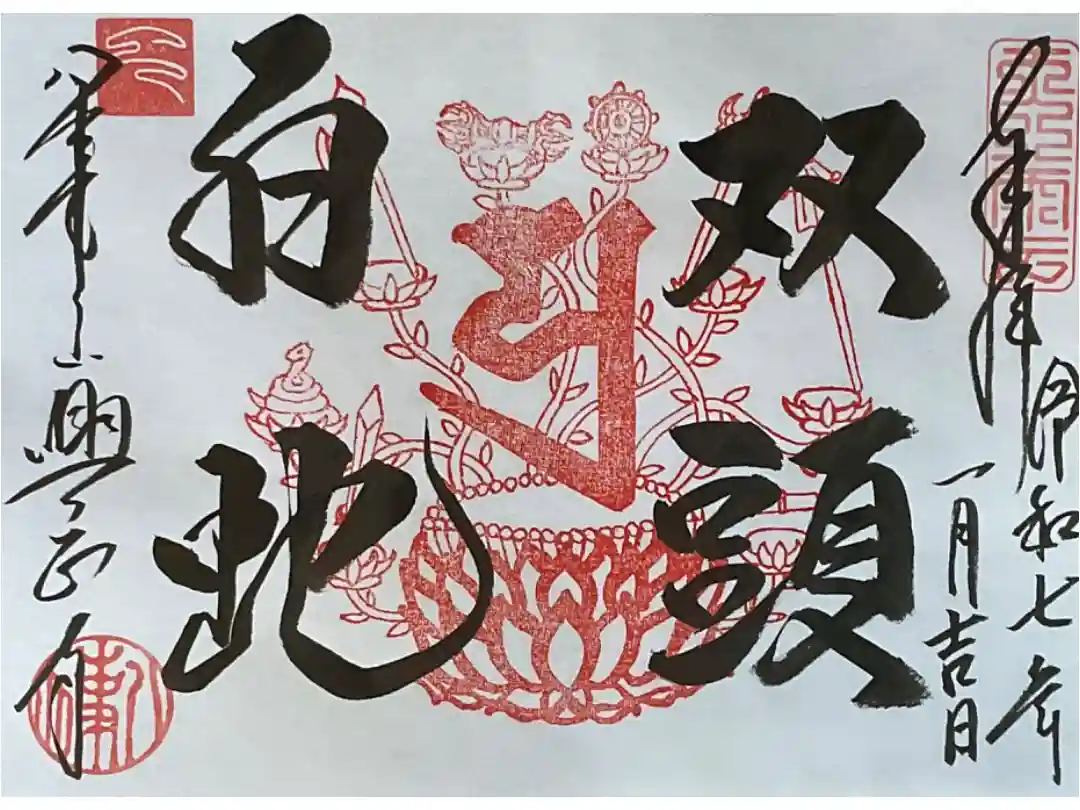 奉拝
令和七年
一月吉日
双頭
白蛇
八事山
興正寺